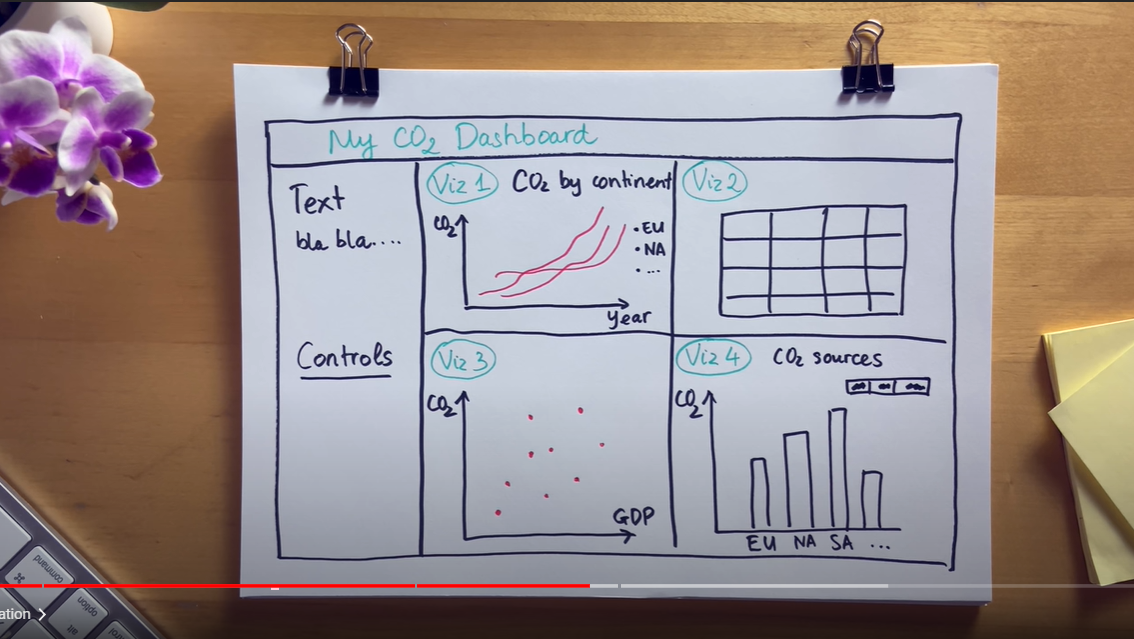 My CO₂ Dashboard
Text
bla bla....
Controls
Viz 1 CO₂ by continent
CO₂
• EU
• NA
• ...
Year
Viz 2
Viz 3
CO₂
GDP
Viz 4 CO₂ sources
CO₂
EU NA SA ...
command
option
alt
ation